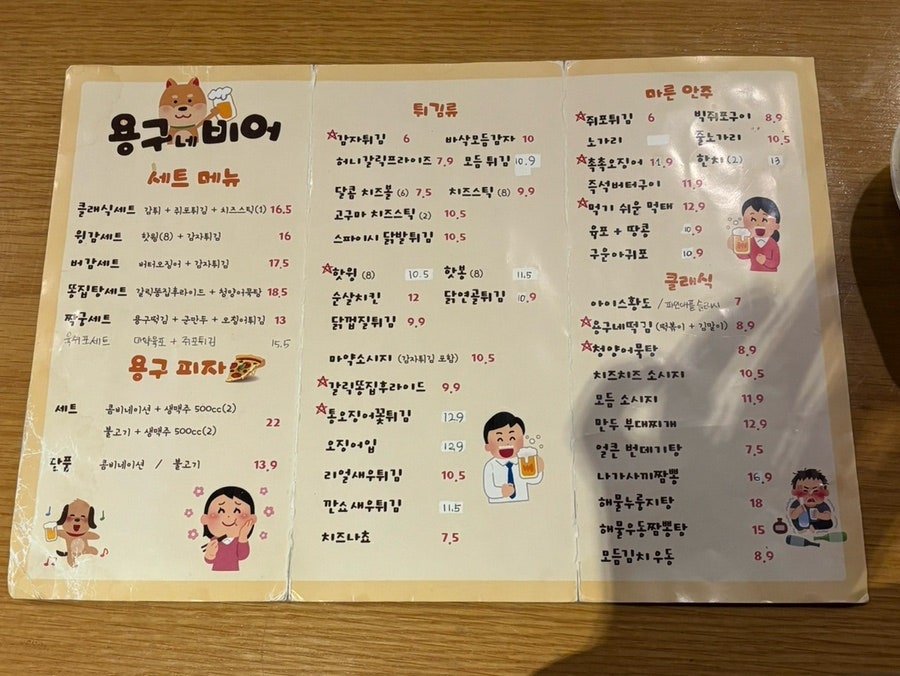 용구네비어
세트 메뉴
클래식세트 감튀 + 쥐포튀김 + 치즈스틱(1) 16.5
윙감세트 핫윙(8) + 감자튀김 16
버감세트 버터오징어 + 감자튀김 17.5
똥집탕세트 갈릭똥집후라이드 + 청양어묵탕 18.5
짝궁세트 용구떡김 + 군만두 + 오징어튀김 13
육쥐포세트 마약육포 + 쥐포튀김 15.5
용구 피자
세트 콤비네이션 + 생맥주 500cc(2)
불고기 + 생맥주 500cc(2)
22
단품 콤비네이션 / 불고기 13.9
튀김류
감자튀김 6 바삭모듬감자 10
허니갈릭프라이즈 7.9 모듬 튀김 10.9
달콤 치즈볼 (6) 7.5 치즈스틱 (8) 9.9
고구마 치즈스틱 (2) 10.5
스파이시 닭발튀김 10.5
핫윙 (8) 10.5 핫봉 (8) 11.5
순살치킨 12 닭연골튀김 10.9
닭껍질튀김 9.9
마약소시지 (감자튀김 포함) 10.5
갈릭똥집후라이드 9.9
통오징어꽃튀김 12.9
오징어입 12.9
리얼새우튀김 10.5
깐쇼새우튀김 11.5
치즈나쵸 7.5
마른 안주
쥐포튀김 6 빅쥐포구이 8.9
노가리 줄노가리 10.5
촉촉오징어 11.9 한치 (2) 13
즉석버터구이 11.9
먹기 쉬운 먹태 12.9
육포 + 땅콩 10.9
구운아귀포 10.9
클래식
아이스황도 / 파인애플 슬러시 7
용구네떡김 (떡볶이 + 김말이) 8.9
청양어묵탕 8.9
치즈치즈 소시지 10.5
모듬 소시지 11.9
만두 부대찌개 12.9
얼큰 번데기탕 7.5
나가사끼짬뽕 16.9
해물누룽지탕 18
해물우동짬뽕탕 15
모듬김치우동 8.9